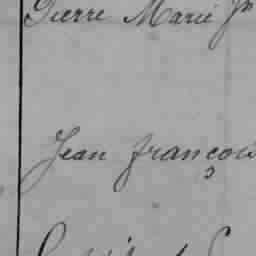 Pierre Marie Jn
Jean françois